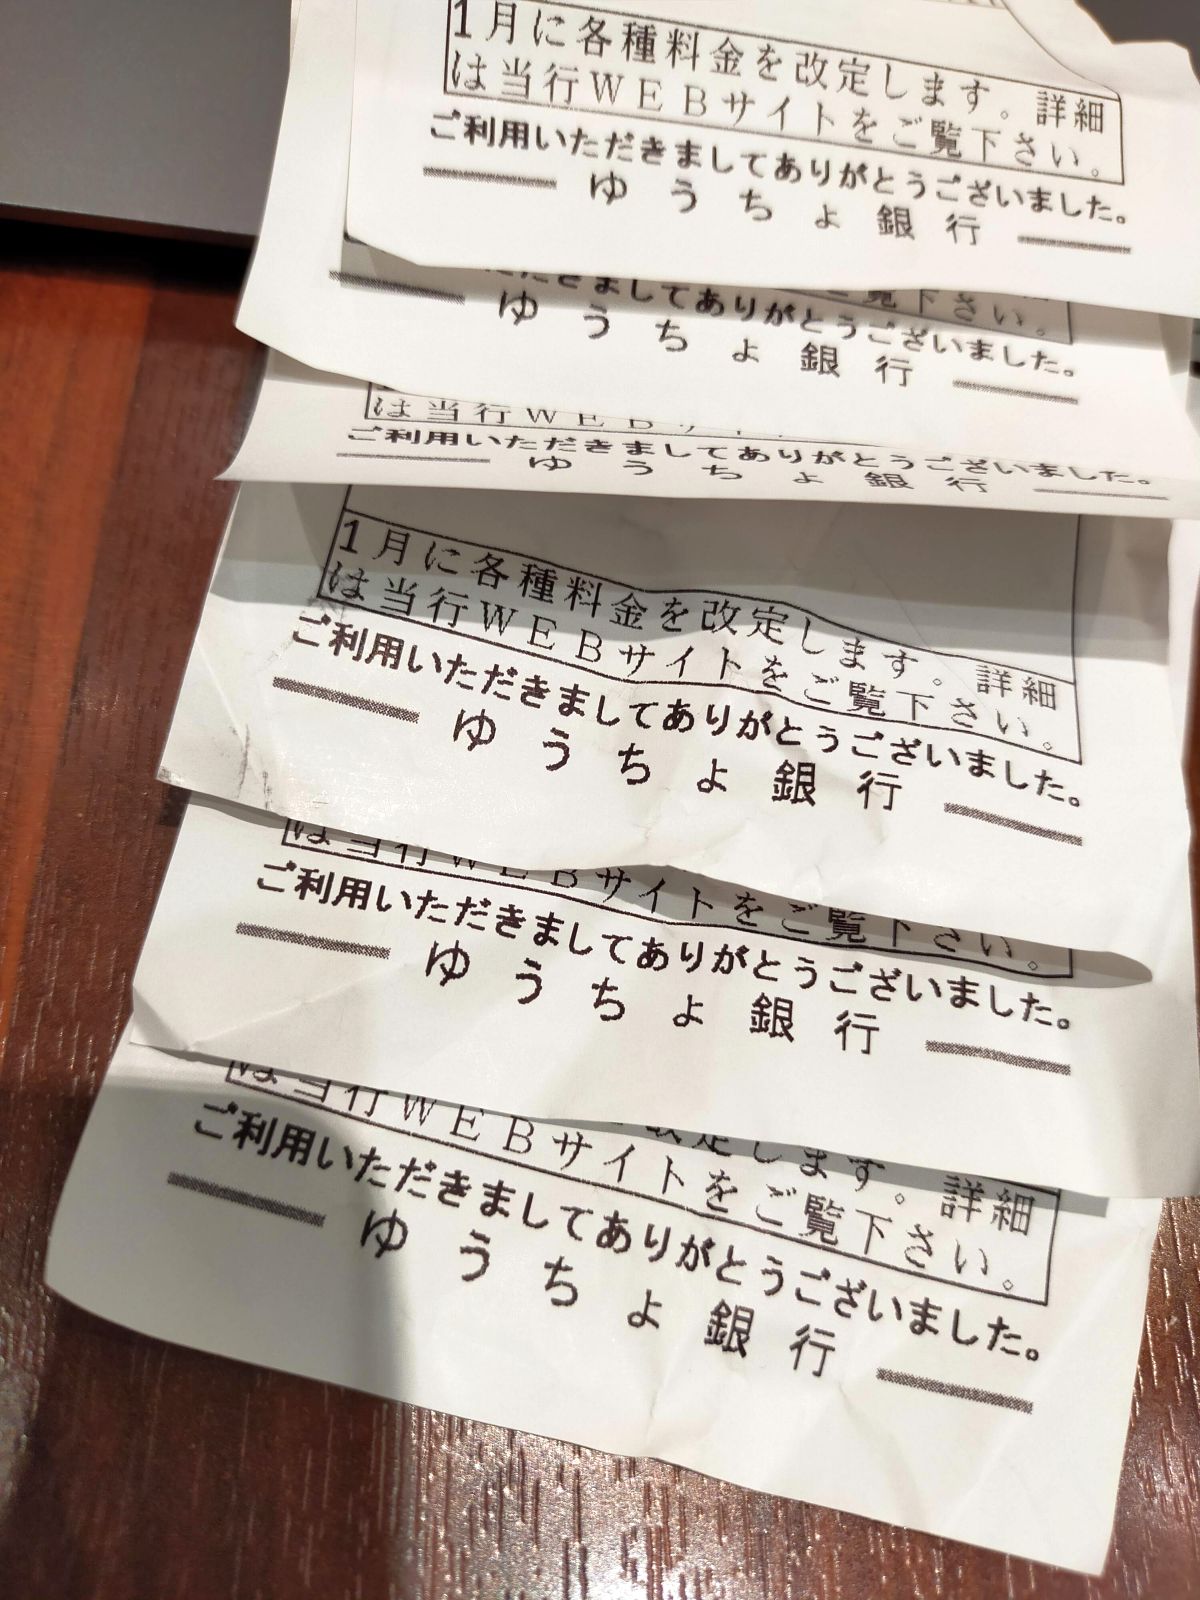 1月に各種料金を改定します。詳細
は当行WEBサイトをご覧下さい。
ご利用いただきましてありがとうございました。
ゆうちょ銀行
ご覧下さい。
ただきましてありがとうございました。
ゆうちょ銀行
は当行WEBサイ
ご利用いただきましてありがとうございました。
ゆうちょ銀行
1月に各種料金を改定します。詳細
は当行WEBサイトをご覧下さい。
ご利用いただきましてありがとうございました。
ゆうちょ銀行
は当行WEBサイトをご覧下さい。
ご利用いただきましてありがとうございました。
ゆうちょ銀行
改定します。詳細
は当行WEBサイトをご覧下さい。
ご利用いただきましてありがとうございました。
ゆうちょ銀行